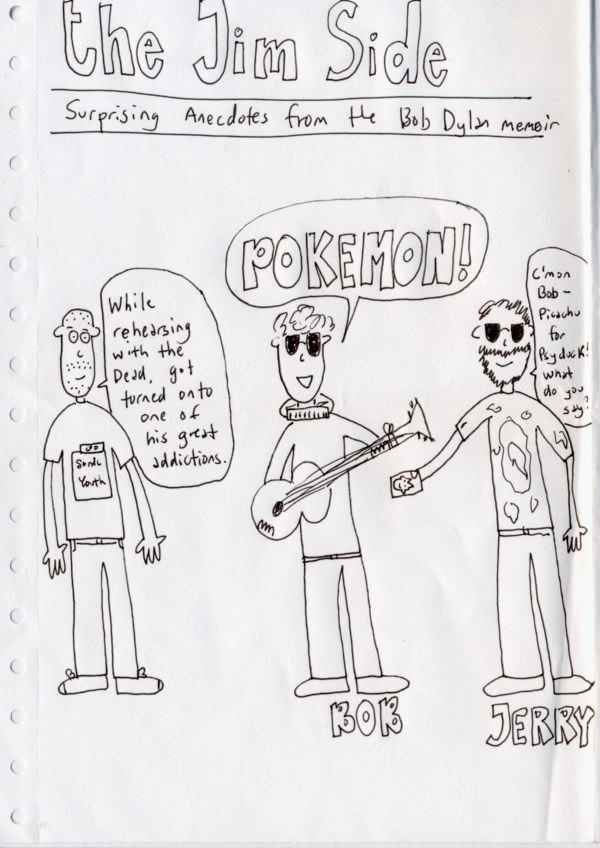 the Jim Side
Surprising Anecdotes from the Bob Dylan memoir
While
rehearsing
with the
Dead, got
turned onto
one of
his great
addictions.
POKEMON!
C'mon
Bob -
Picachu
for
Psyduck!
what
do you
say?
Sonic
Youth
BOB
JERRY